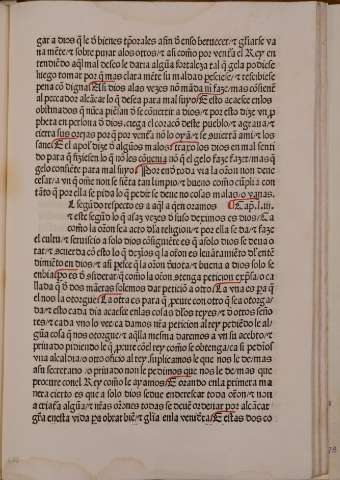 gar a dios q̃ le d' bienes tẽporales asi ẽn enso beruecer/ ⁊ gliarse va
na mẽte/ ⁊ sobre pujar alos otros/ ⁊ asi comõ por vent̃a el Rey en
tendiẽdo aq̃l mal deseo le daria algũa fortaleza tal q̃ gela podiese
luego tomar por q̃ mas clara mẽte su maldad
pena cõ digna Asi dios alas vezes nõ mãda ni faze/ mas cõsient
al peccador alcãçar lo q̃ desea para mal suyo/ Esto acaesce enlos
obstinados q̃ nũca piẽsan d' se cõuertir a dios/ ⁊ por esto dize vn p̃
pheta en persona d' dios. ciega el coraçõ deste pueblo/ ⁊ agraua/ ⁊
cierra sus orejas por q̃ por vent̃a nõ lo oya/ ⁊ se cõuierta ami/ ⁊ los
sane/ E el apost̃ol dize q̃ algũos malos traxo los dios en mal senti
do para q̃ fiziesen lo q̃ nõ les cõuenia nõ q̃ el gelo faze fazer/ mas q̃
gelo consiẽte para mal suyo/ Por end' toda via la oraõn non deue
cesar/ avn q̃ om̃e non se siẽta tan limpio/ ⁊ bueno comõ cũplia con
tãto q̃ por ella se pida lo q̃ pedir se deue no cosas malas/ o vanas.
L segũdo respecto es a aq̃l a quien oramos Cap.l.iii.
⁊ este segũd lo q̃ asaz vezes d' suso deximos es dios/ Ca
comõ la oraõn sea acto d'la religion/ ⁊ por ella se da/ ⁊ faze
el cultu/ ⁊ seruicio a solo dios cõsiguiẽte es q̃ a solo dios se deua o
rar/ ⁊ acuerda cõ esto lo q̃ dezimos q̃ la oraõn es leuãtamiẽto d'l entẽ
dimiẽto en dios/ ⁊ asi pelce q̃ la oraõn d'uota/ ⁊ buena a dios solo se
enbia pero es d' cõsiderar q̃ comõ la oraõn tenga peticion exp̃sa/ o ca
llada q̃ d' dos maneras solemos dar peticiõ a otro La vna es para q̃
el nos la otorgue La otra es para q̃ procure con otro q̃ sea otorga
da/ ⁊ esto cada dia acaesce enlas cosas d'los reyes/ ⁊ d' otros seño
res/ ⁊ cada vno lo vee ca damos nr̃a peticion al rey pediẽdo le al
gũa cosa q̃ nos otorgue/ ⁊ aq̃lla mesma daremos a vn su acebto/ ⁊
priuado pidiendo le q̃ procure cõel rey comõ se obtenga/ ca si pedios
vna alcaldia/ o otro oficio al rey. suplicamos le que nos le de/ mas
asu secretario/ o priuado non le pedimos que nos le de mas que
procure conel Rey comõ le ayamos/ E orando enla primera ma
nera cierto es que a solo dios se deue enderesçar toda oraõn/ ⁊ non
a criat̃a algũa/ ⁊ nr̃as oraõnes todas se deuẽ ordenar por alcãcar
gr̃a enesta vida para obrar biẽ/ ⁊ gl̃ia enla venid̃a/ E estas dos co